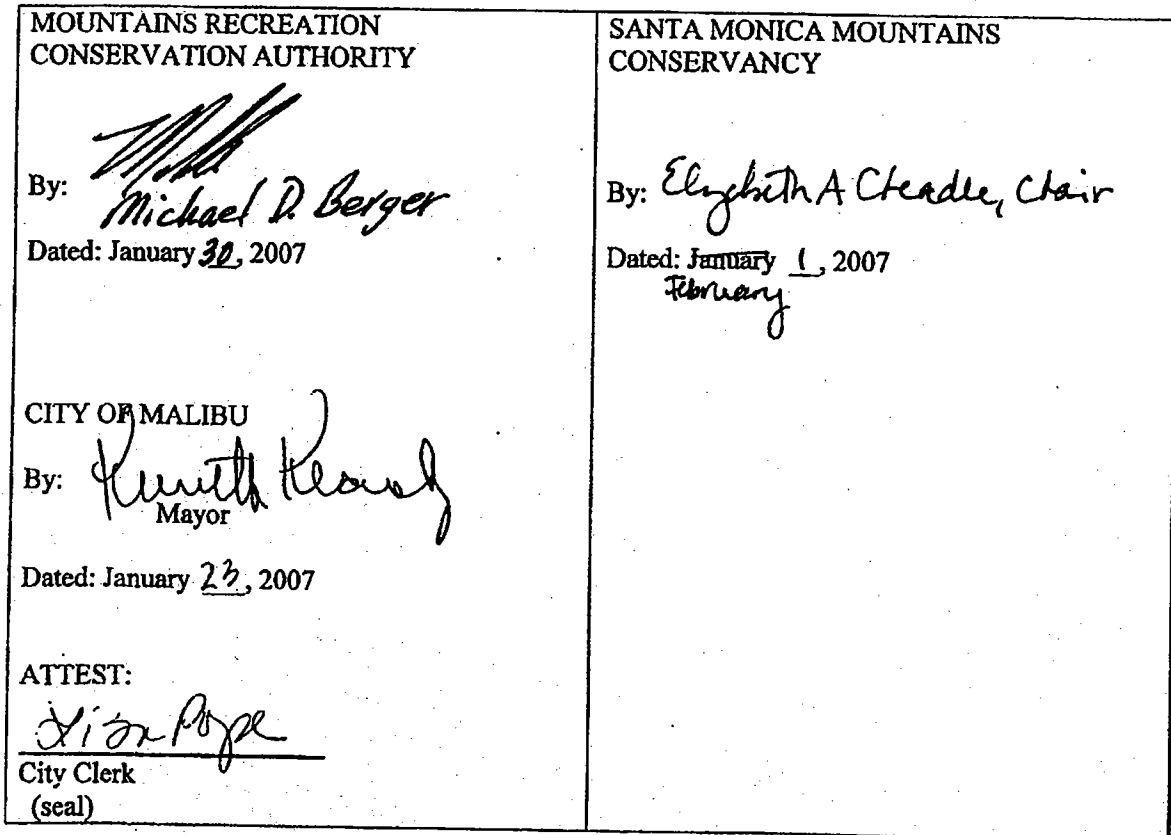 MOUNTAINS RECREATION
CONSERVATION AUTHORITY
By:
Michael D. Berger
Dated: January 30, 2007
CITY OF MALIBU
By:
Mayor
Dated: January 23, 2007
ATTEST:
Lisa Pope
City Clerk
(seal)
SANTA MONICA MOUNTAINS
CONSERVANCY
By: Elizabeth A Cheadle, Chair
Dated: January 1, 2007
February